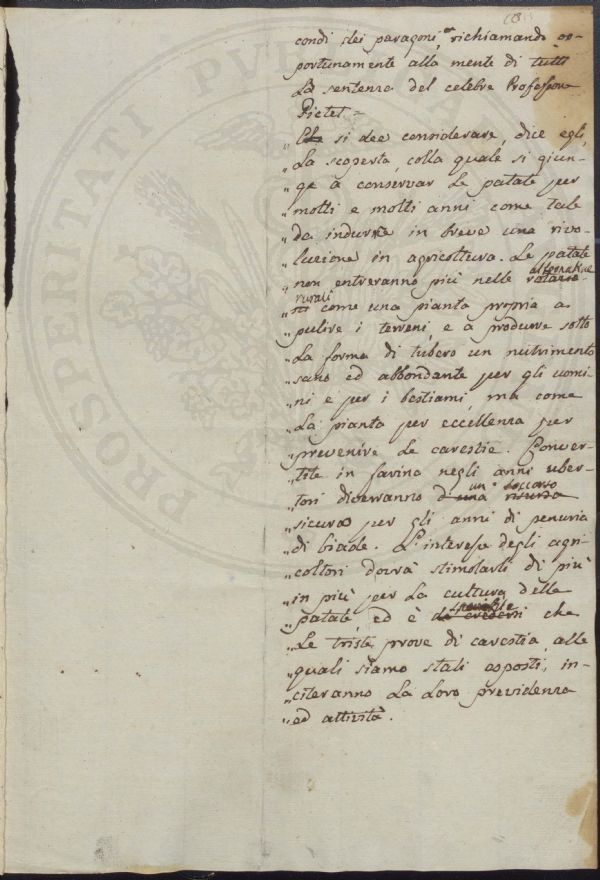 18
condi dei paragoni, e richiamando op-
portunamente alla mente di tutti
la sentenza del celebre Professore
Pictet =
„ Che si dee considerare, dice egli,
„ la scoperta, colla quale si giun-
„ ge a conservar le patate per
„ molti e molti anni come tale
„ da indurre in breve una rivo-
„ luzione in agricoltura. Le patate
„ non entreranno più nelle rotazio alternative
„ ni rurali come una pianta propria a
„ pulire i terreni, e a produrre sotto
„ la forma di tubero un nutrimento
„ sano ed abbondante per gli uomi-
„ ni e per i bestiami, ma come
„ la pianta per eccellenza per
„ prevenire le carestie. Conver-
„ tite in farina negli anni uber-
„ tosi diverranno d una risorsa un soccorso
„ sicuro per gli anni di penuria
„ di biade. L'interesse degli agri-
„ coltori dovrà stimolarli di più
„ in più per la cultura delle
„ patate, ed è da credersi che
„ le triste prove di carestia, alle
„ quali siamo stati esposti, in-
„ citeranno la loro previdenza
„ ed attività.
PROSPERITATI PVBLICAE